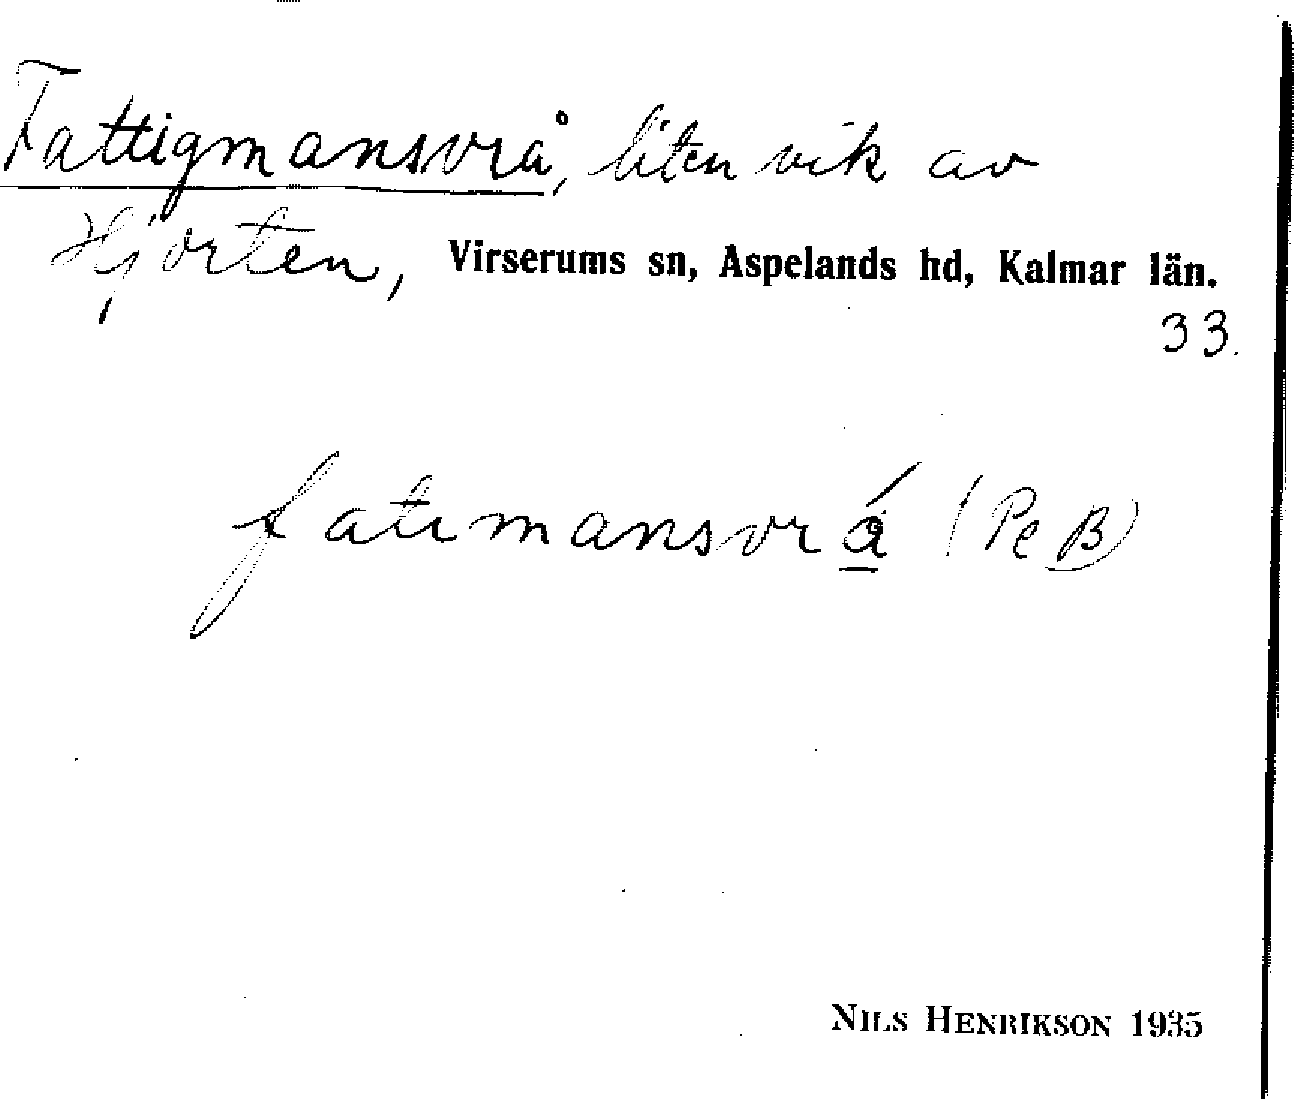 Fattigmansvrå, liten vik av
Hjorten, Virserums sn, Aspelands hd, Kalmar län.
33.
fatimansvrá̱ (Pe B)
NILS HENRIKSON 1935